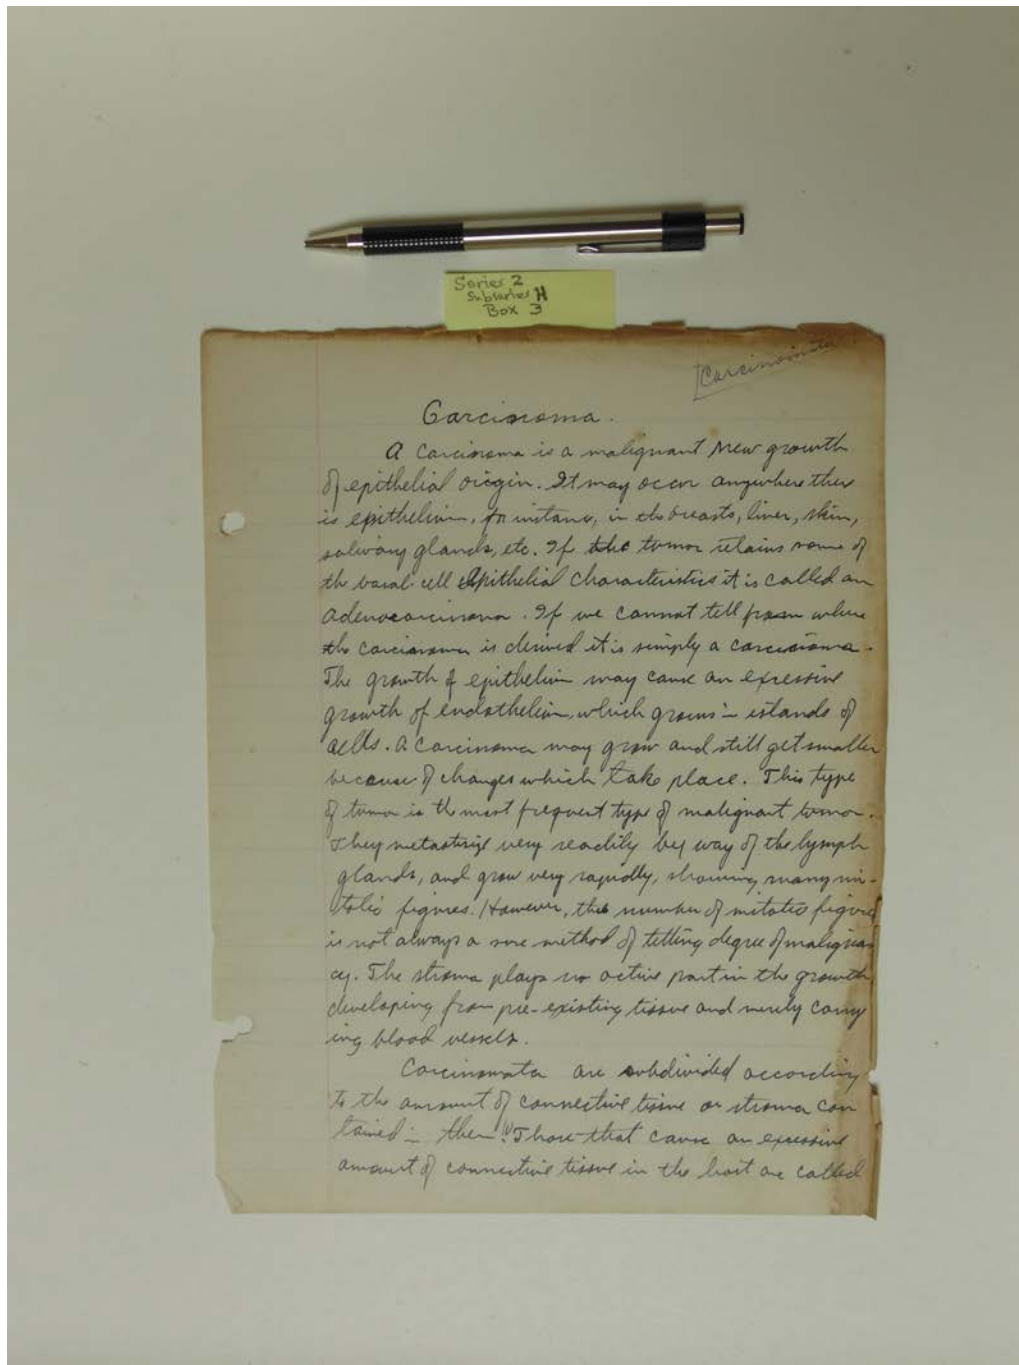 Series 2
Subseries H
Box 3
Carcinomata
Carcinoma.
A carcinoma is a malignant new growth
of epithelial origin. It may occur anywhere there
is epithelium, for instance, in the breasts, liver, skin,
salivary glands, etc. If the tumor retains some of
the basal-cell epithelial characteristics it is called an
adenocarcinoma. If we cannot tell from where
the carcinoma is derived it is simply a carcinoma.
The growth of epithelium may cause an excessive
growth of endothelium, which grows in islands of
cells. A carcinoma may grow and still get smaller
because of changes which take place. This type
of tumor is the most frequent type of malignant tumor.
They metastasize very readily by way of the lymph
glands, and grow very rapidly, showing many mi-
totic figures. However, the number of mitotic figures
is not always a sure method of telling degree of malignan
cy. The stroma plays no active part in the growth,
developing from pre-existing tissue and merely carry
ing blood vessels.
Carcinomata are subdivided according
to the amount of connective tissue or stroma con
tained in them. (1) Those that cause an excessive
amount of connective tissue in the host are called